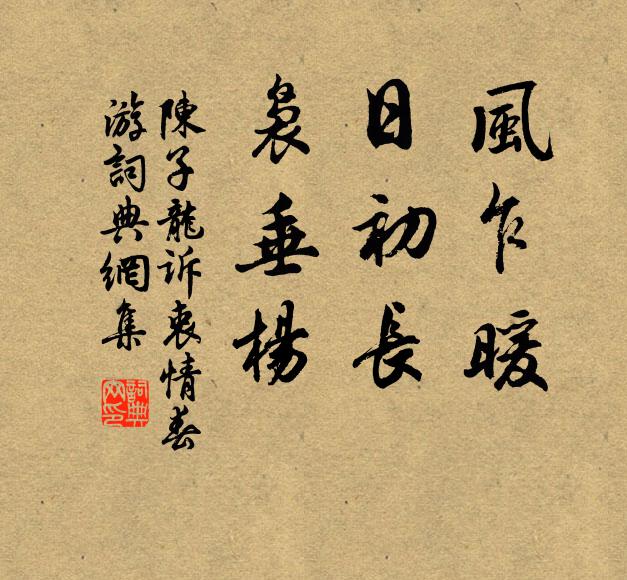 風乍暖
日初長
裊垂楊
陳子龍訴衷情春
游詞典網集
詞典網印